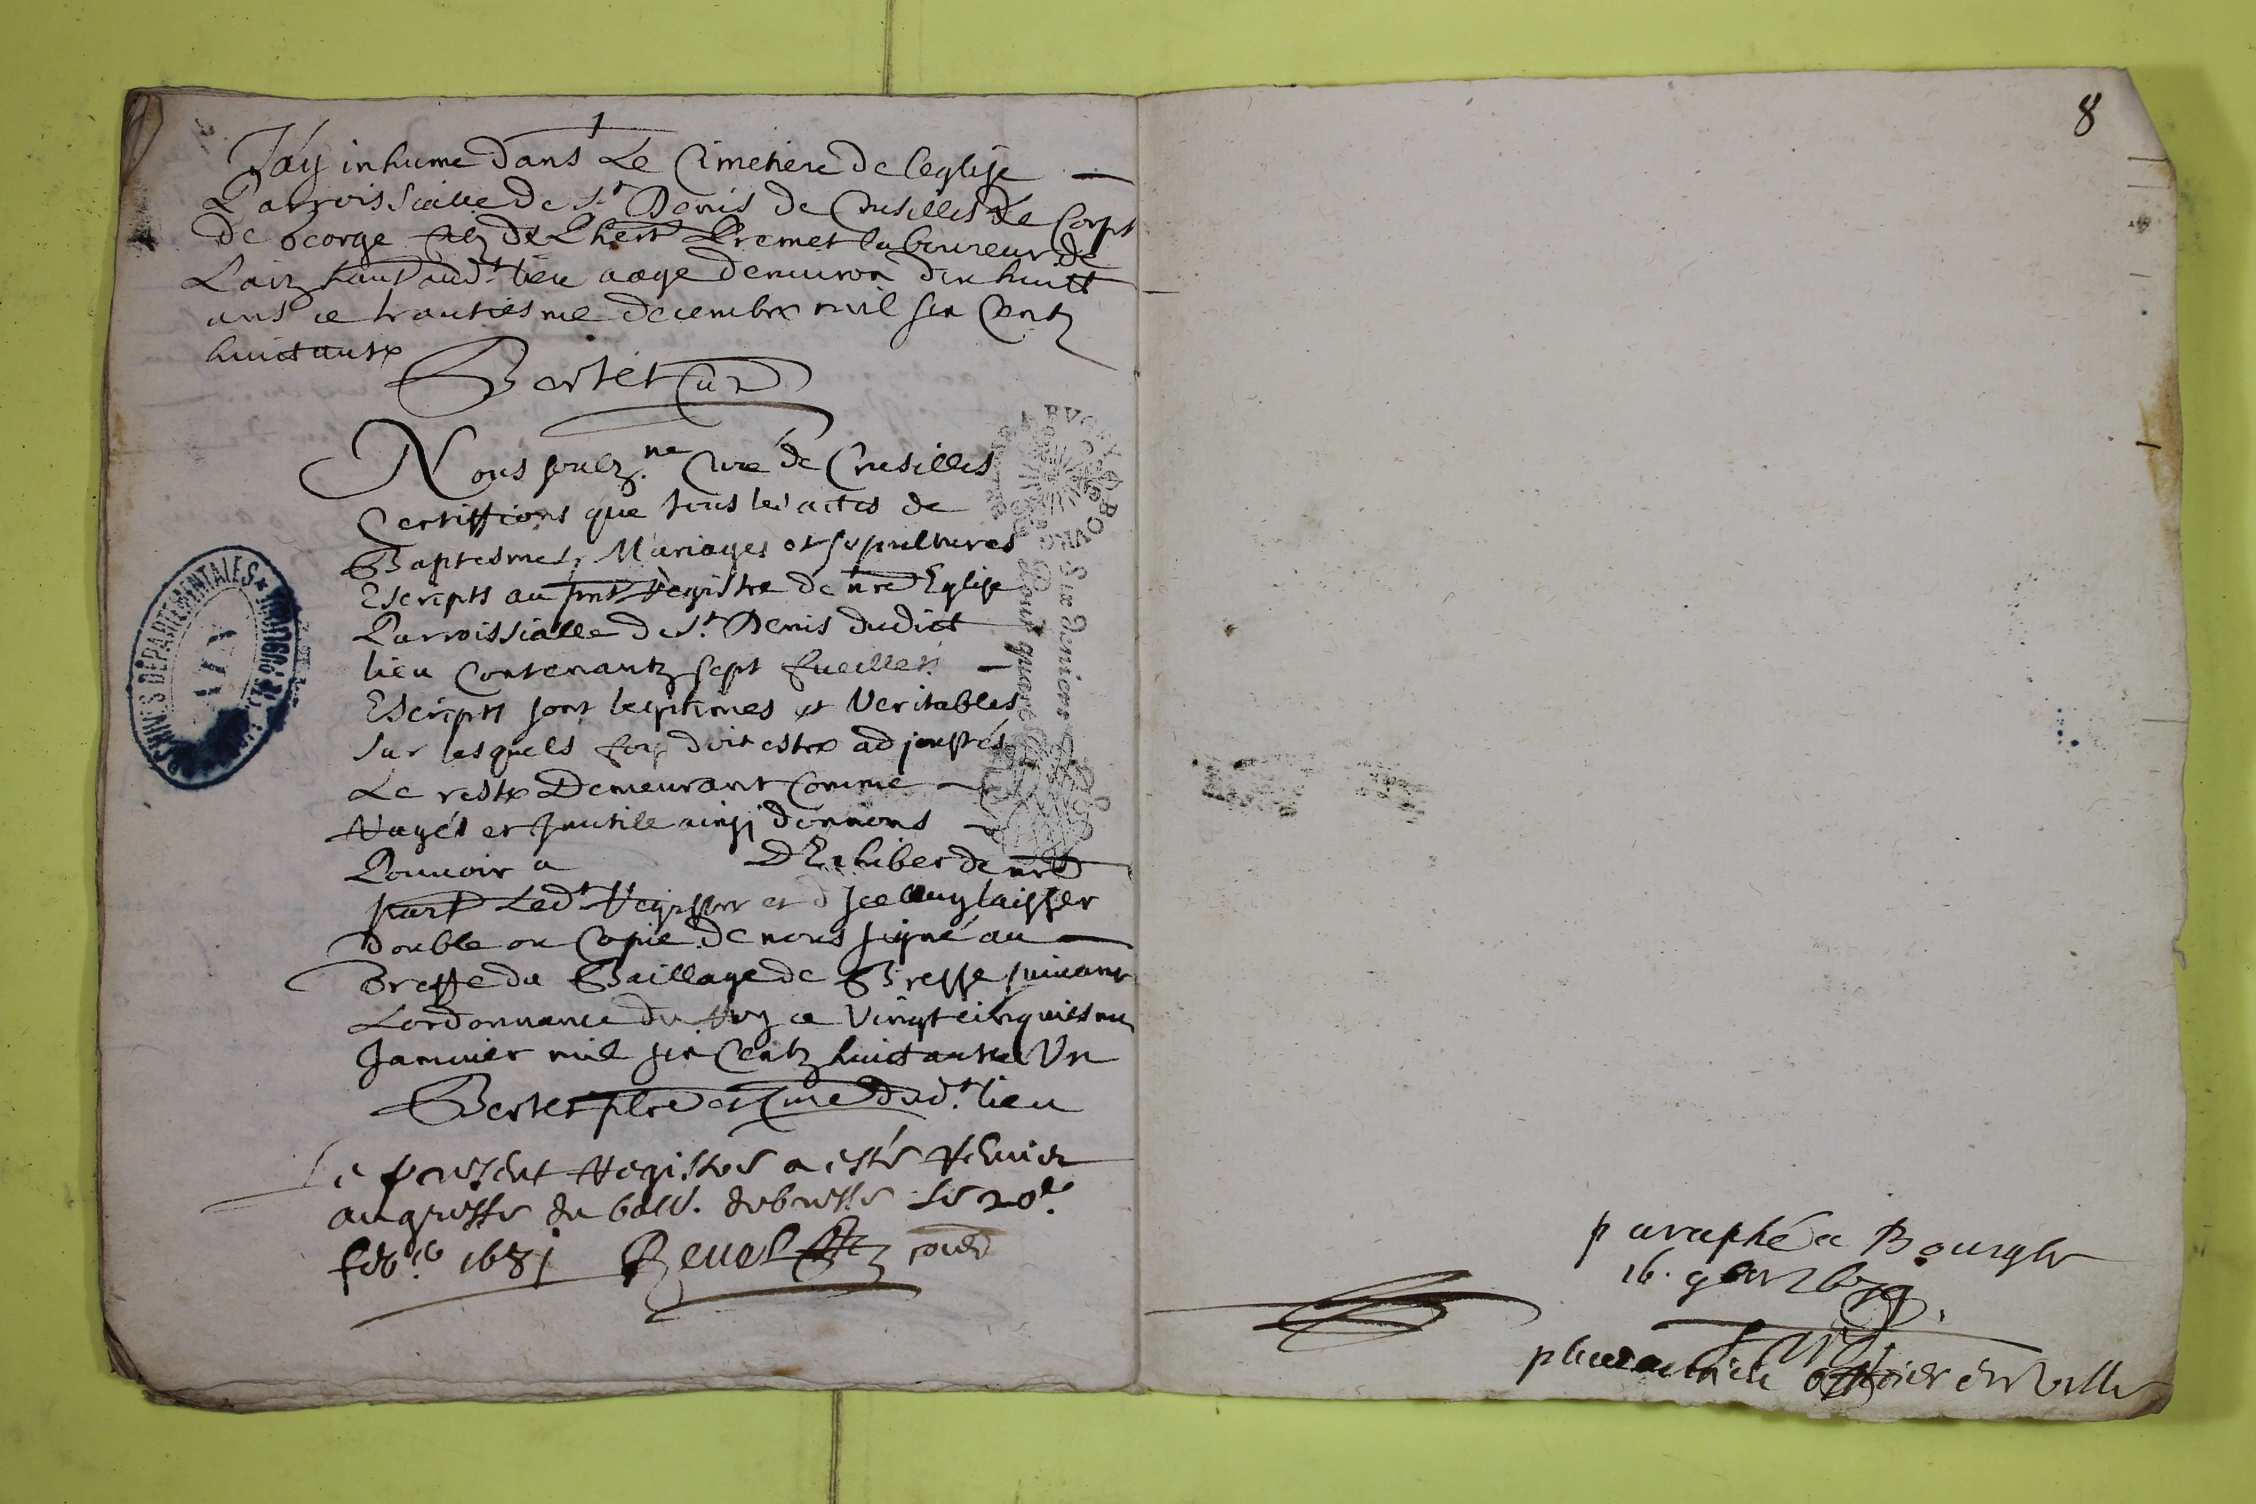 J'ay inhume dans Le Cimetiere de l'eglise
Parroissialle de St Denis de Crusilles Le Corps
de George filz de Premet laboureur de
haut aud.t lieu aage denuiron dix huict
ans ce trantiesme decembre mil six Centz
huictante
Bertet curé
Nous soubz.ne Curé de Crusilles
Certiffions que tous les actes de
Baptesmes, Mariages et sepultures
Escripts au pnt Registre de nre Eglise
Parroissialle de St. Denis dudict
lieu Contenantz sept fueillets
Escripts sont legitimes et Veritables
sur lesquels foy doit estre adjoustés
Le reste Demeurant comme
et Inutile ainsi donnons
Pouuoir a D'Exhiber de nre
part Led.t Registre et d'Iceluy laisser
Double ou Copie de nous signé au
Greffe du Baillage de Bresse suiuant
L'ordonnance du Roy ce Vingt cinquiesme
Januier mil six Centz huictante Un
Bertet pbre et Curé dud.t lieu
Le present Registre a esté Remis
au greffe du ball. de bresse Le 20e
feb.er 1681 Reuel
ARCHIVES DÉPARTEMENTALES
AIN
BOURG
Six deniers
Pour quart
8
paraphé a Bourg le
16.